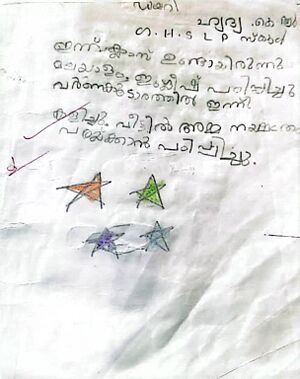 ഡയറി
ഹൃദ്യ . കെ ആർ
G . H . S L P സ്കൂൾ
ഇന്ന് ക്ലാസ് ഉണ്ടായിരുന്നു
മലയാളം ഇംഗ്ലീഷ് പഠിപ്പിച്ചു
വർണക്കൂടാരത്തിൽ ഇന്ന്
കളിച്ചു. വീട്ടിൽ അമ്മ നക്ഷത്രം
വരയ്ക്കാൻ പഠിപ്പിച്ചു.